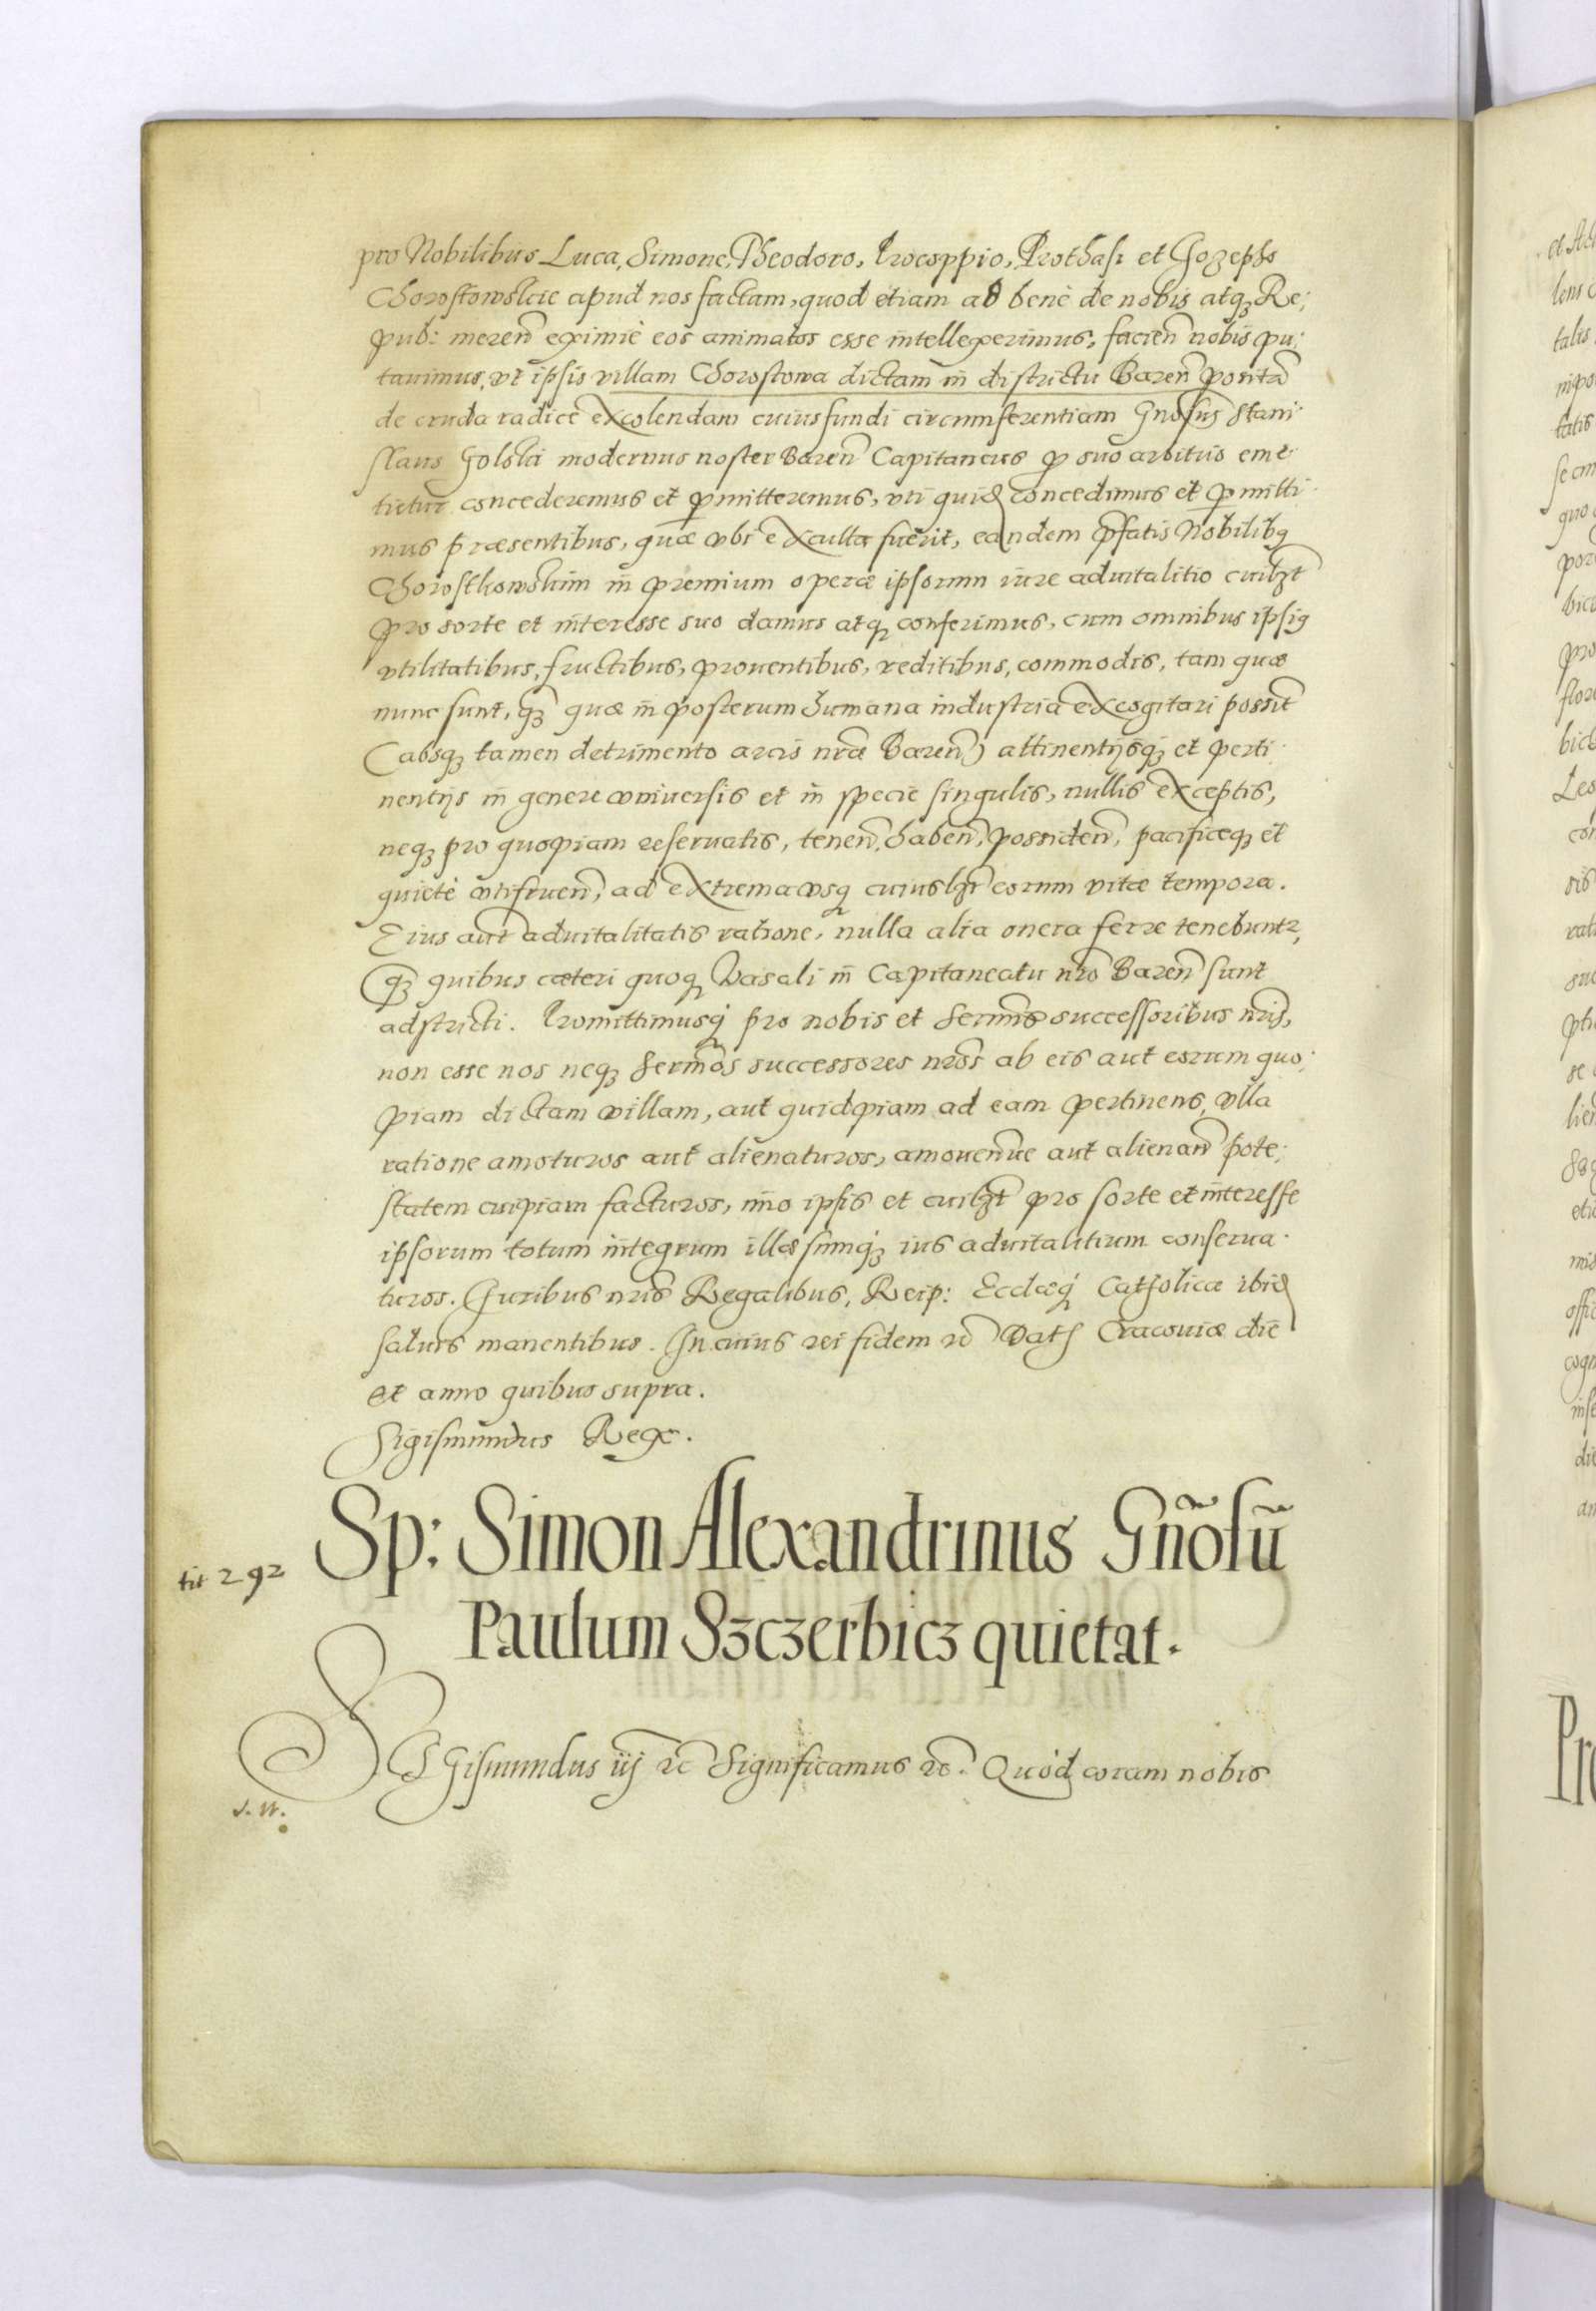 pro Nobilibus Luca, Simone, Theodoro, Procoppio, Prothasi et Jozepho
Chorostowskie apud nos factam, quod etiam ad bene de nobis atq; Re:
pub: meren̄ eximiè eos animatos esse intellexerimus, facien̄ nobis pu:
tauimus, vt ipsis villam Chorostowa dictam in districtu Baren̄ positā
de cruda radice excolendam cuius fundi circumferentiam Gnosus Stani:
slaus Golski modernus noster Baren̄ Capitaneus p suo arbitrio eme:
tietur concederemus et pmitteremus, vti quid concedimus et pmitti:
mus præsentibus, quæ vbi exculta fuerit, eandem pfatis Nobilibq
Chorosthowskim in premium operæ ipsorum iure aduitalitio cuilzt
pro sorte et interesse suo damus atq; conferimus, cum omnibus ipsis
vtilitatibus, fructibus, prouentibus, reditibus, commodis, tam quæ
nunc sunt, q̄ quæ in posterum humana industria excogitari possīt
(absq; tamen detrimento arcis nr̄æ Baren̄) attinentijsq; et perti:
nentijs in genere vniuersis et in specie singulis, nullis exceptis,
neq; pro quopiam reseruatis, tenen̄, haben̄, possiden̄, pacificeq; et
quietè vtifruen̄, ad extrema vsq; cuiuslzt eorum vitæ tempora.
Eius aut̄ aduitalitatis ratione, nulla alia onera ferre tenebuntr,
q̄ quibus cæteri quoq; Vasali in Capitaneatu nr̄o Baren̄ sunt
adstricti. Promittimusq; pro nobis et Sermīs successoribus nr̄is,
non esse nos neq; Sermōs successores nr̄os ab eis aut eorum quo:
piam dictam villam, aut quidpiam ad eam pertinens, vlla
ratione amoturos aut alienaturos, amouen̄ue aut alienan̄ pote:
statem cuipiam facturos, imo ipsis et cuilzt pro sorte et interesse
ipsorum totum integrum illæsumq; ius aduitalitium conserua:
turos. Juribus nr̄is Regalibus, Reip: Ecclæq; Catholicæ ibid
saluis manentibus. In cuius rei fidem &c̄ Dat Cracouiæ die
et anno quibus supra.
Sigismundus Rex.
Sp: Simon Alexandrinus Gn̄osū
tit 292
Paulum Szczerbicz quietat.
SIGismundus iij &c̄ Significamus &c̄. Quòd coram nobis